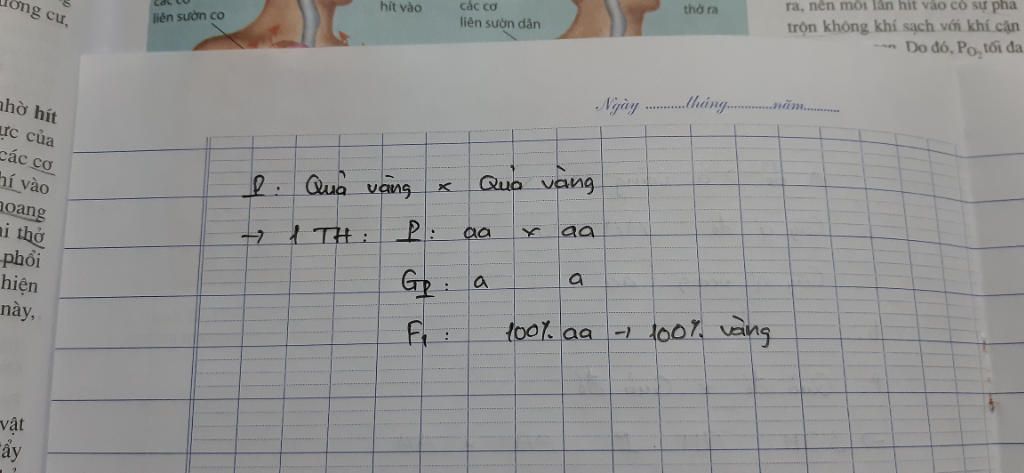 các cơ
liên sườn co
hít vào
các cơ
liên sườn dãn
thở ra
ra, nên mỗi lần hít vào có sự pha
trộn không khí sạch với khí cặn
Do đó, PO₂ tối đa
cư,
nhờ hít
ực của
các cơ
hí vào
hoang
hi thở
phổi
hiện
này,
vật
ẩy
Ngày ..........tháng..........năm..........
P: Quả vàng × Quả vàng
→ 1 TH: P: aa × aa
Gp: a a
F₁: 100% aa → 100% vàng